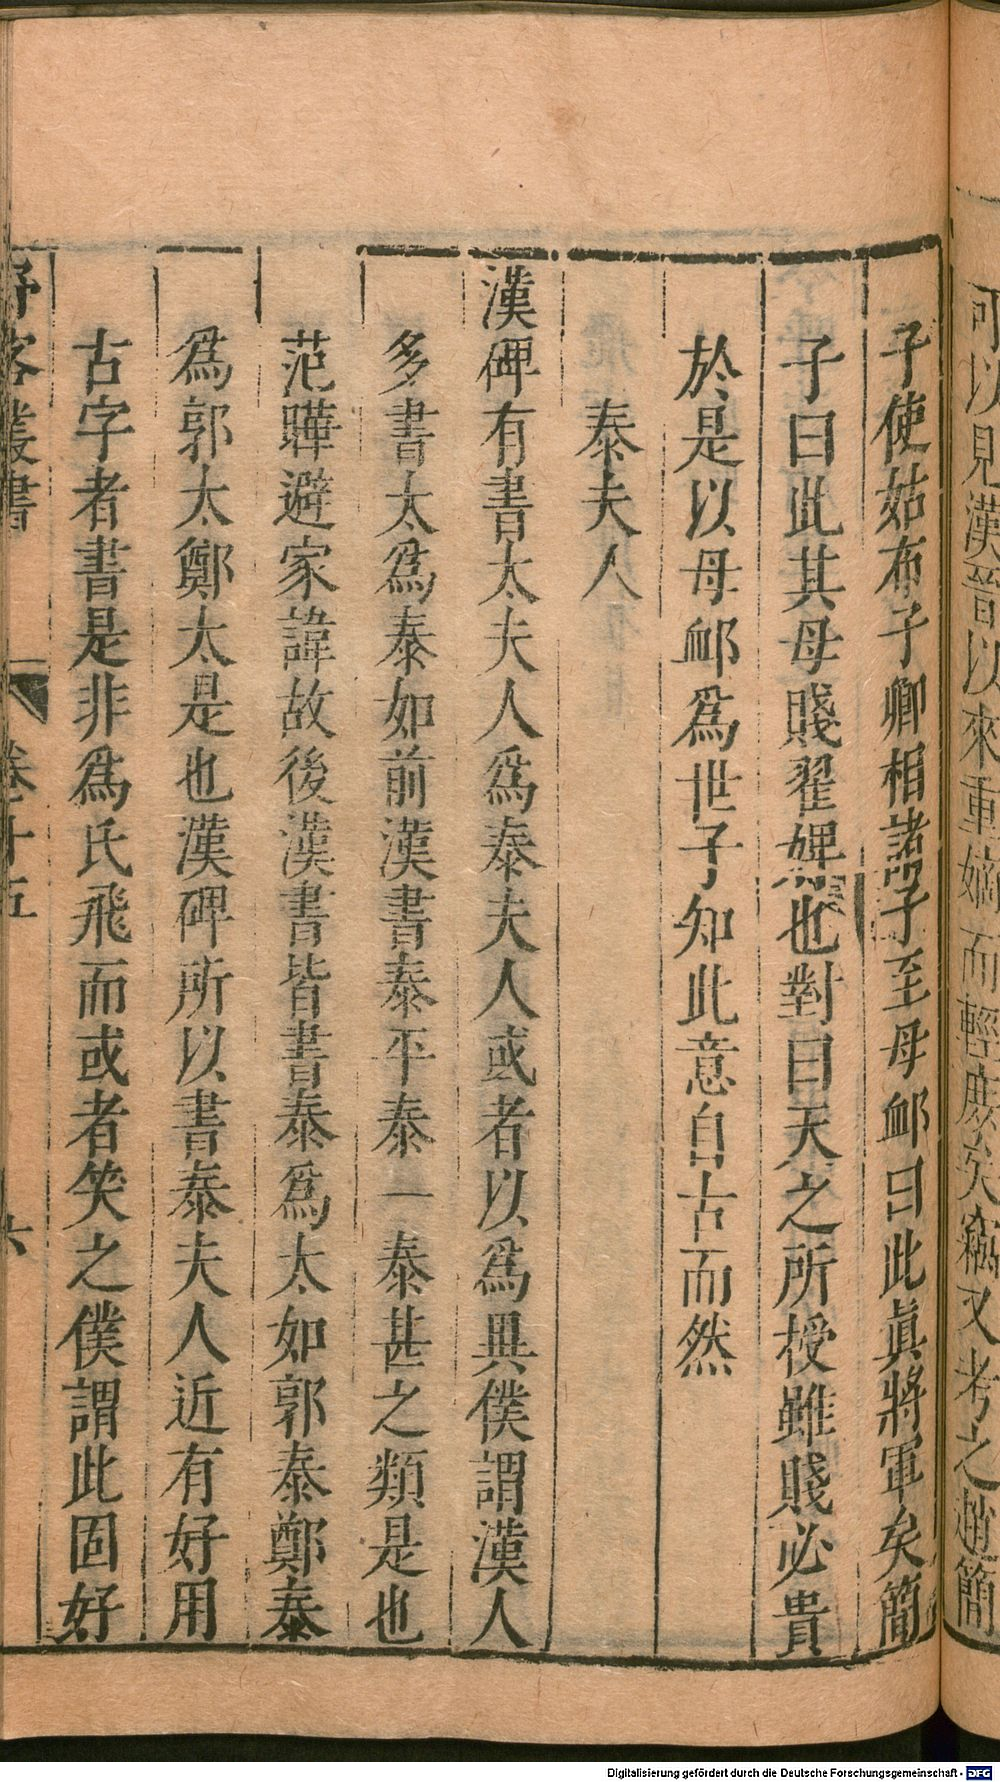 可以見漢晉以來重嫡而輕庶矣竊又考之趙簡
子使姑布子卿相諸子至母卹曰此眞將軍矣簡
子曰此其母賤翟婢也對曰天之所授雖賤必貴
於是以母卹爲世子知此意自古而然
泰夫人
漢碑有書太夫人爲泰夫人或者以爲異僕謂漢人
多書太爲泰如前漢書泰平泰一泰甚之類是也
范曄避家諱故後漢書皆書泰爲太如郭泰鄭泰
爲郭太鄭太是也漢碑所以書泰夫人近有好用
古字者書是非爲氏飛而或者笑之僕謂此固好
野客叢書 卷十五 六
Digitalisierung gefördert durch die Deutsche Forschungsgemeinschaft - DFG